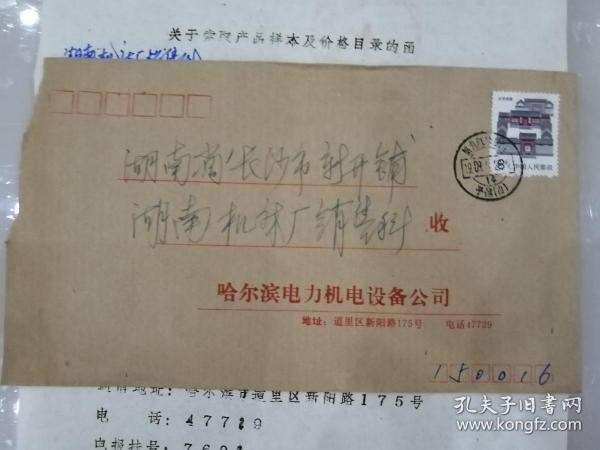 关于索取产品样本及价格目录的函
湖南机床厂销售科
湖南省长沙市新开铺
湖南机床厂销售科 收
中国人民邮政
哈尔滨电力机电设备公司
地址：道里区新阳路175号 电话47729
150016
哈尔滨市道里区新阳路175号
电 话：47729
电报挂号：
孔夫子旧书网
www.kongfz.com